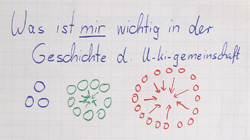 Was ist mir wichtig in der
Geschichte d. U-ki-gemeinschaft